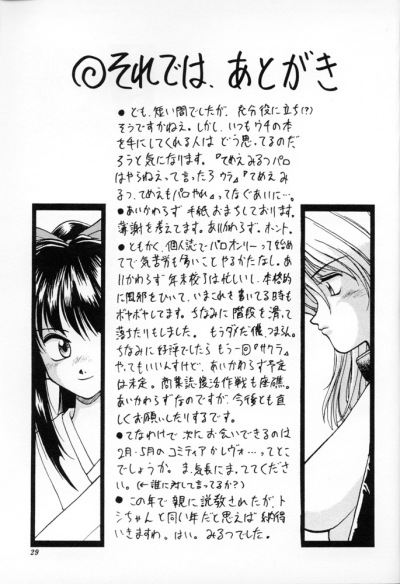 ◎それでは、あとがき
●ども、短い間でしたが、充分役に立ち(?)
そうですかねえ。しかし、いつもウチの本
を手にしてくれる人は どう思ってるのだ
ろうと気になります。『てめえみるつパロ
はやらねえって言ったろウラァ』『てめえみ
るつ、てめえもパロやれ』ってなぐあいに…。
●あいかわらず 手紙おまちしております。
薄謝を考えてます。ありがわらず。ホント。
●ともかく、個人誌でパロオンリーって始め
てで気苦労も多いことやるかたなし。あ
いかわらず年末校了は忙しいし、本格的
に風邪をひいて、いまこれを書いてる時も
ボヤボヤしてます。ちなみに 階段を滑って
落ちたりもしました。もうダメだ僕、つまらん。
ちなみに好評でしたら もう一回『サクラ』
やってもいいんすけど、あいかわらず予定
は未定。商業誌復活作戦も座礁。
あいかわらずなのですが、今後とも宜し
くお願いしたりするです。
●てなわけで 次にお会いできるのは
2月・5月のコミティアかレヴォ…ってとこ
でしょうか。ま、気長にま、ててくださ
い。(←誰に対して言ってるか?)
●この年で 親に説教されたが、ト
シちゃんと同い年だと思えば納得
いきますわ。はい。みるつでした。
29